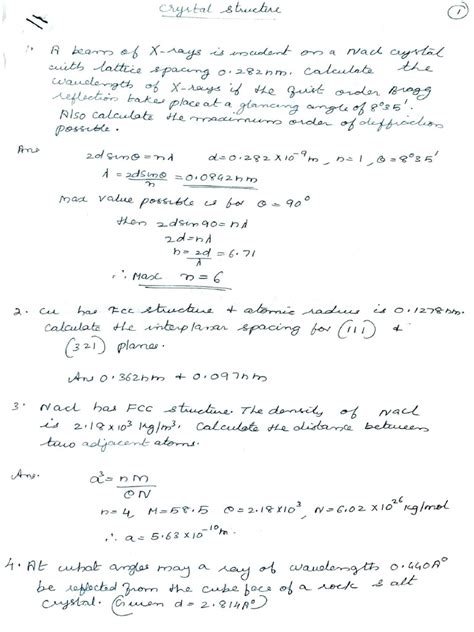 Crystal Structure
1
1. A beam of X-rays is incident on a Nacl crystal
with lattice spacing 0.282nm. Calculate the
wavelength of X-rays if the first order Bragg
reflection takes place at a glancing angle of 8°35'.
Also calculate the maximum order of diffraction
possible.
Ans 2dsinθ=nλ d=0.282×10⁻⁹m, n=1, θ=8°35'
λ = 2dsinθ/n = 0.0842nm
Max value possible is for θ = 90°
then 2dsin90=nλ
2d=nλ
n = 2d/λ = 6.71
∴ Max n=6
2. Cu has Fcc structure & atomic radius is 0.1278nm.
Calculate the interplanar spacing for (111) &
(321) planes.
Ans 0.362nm & 0.097nm
3. Nacl has FCC structure. The density of Nacl
is 2.18×10³ kg/m³. Calculate the distance between
two adjacent atoms.
Ans. a³ = nM/ρN
n=4, M=58.5 ρ=2.18×10³, N=6.02×10²⁶ kg/mol
∴ a=5.63×10⁻¹⁰m.
4. At what angles may a ray of wavelength 0.440A°
be reflected from the cube face of a rock salt
crystal. (Given d = 2.814A°)